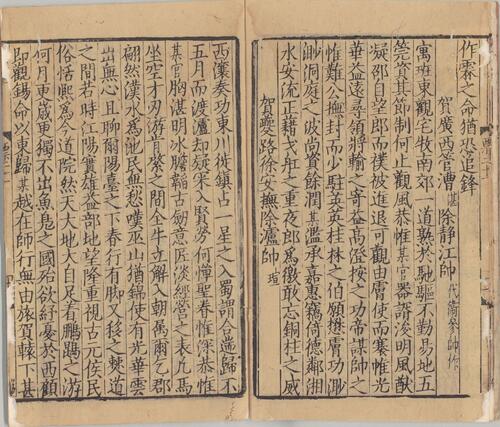 作霖之命猶恐追鋒
賀廣西管漕湛除靜江帥代衛參帥作
寓班東觀宅牧南郊一道熟於馳驅不勤易地五
筦賁其節制何止觀風恭惟某官器諝浚明風猷
凝邵自望郎而樸被進退可觀由膚使而褰帷光
華益遠尋領將輸之寄益高澄按之功帝謀帥之
惟難公撫封而少駐英英桂林之伯願攄膚功渺
渺洞庭之波尚賁餘潤某濫承嘉惠竊倚德鄰湘
水安流正藉戈舡之重夜郎為徼敢忘銅柱之威
賀夔路徐安撫除瀘帥瑄
西瀼奏功東川徙鎮占一星之入蜀謂合遄歸不
五月而渡瀘却疑采入賢勞何憚聖眷惟深恭惟
某官胸湛明氷膽韜古劒意匠淡經營之表凢馬
坐空才刃游肯綮之間全牛立解入朝萬爾乞郡
翩然漢水為池民無愁嘆巫山猶錦使有光華雲
出無心且聊爾陽臺之下春行有脚又移之棘道
之間若時江陽實雄益部地望隆重視古元侯民
俗恬熙為今道院然天大地大自足看鵬鷃之游
何月東歲東獨不出魚鳧之國殆欲紓憂於西顧
即觀錫命以東歸某越在師行無由旅賀轅下甚